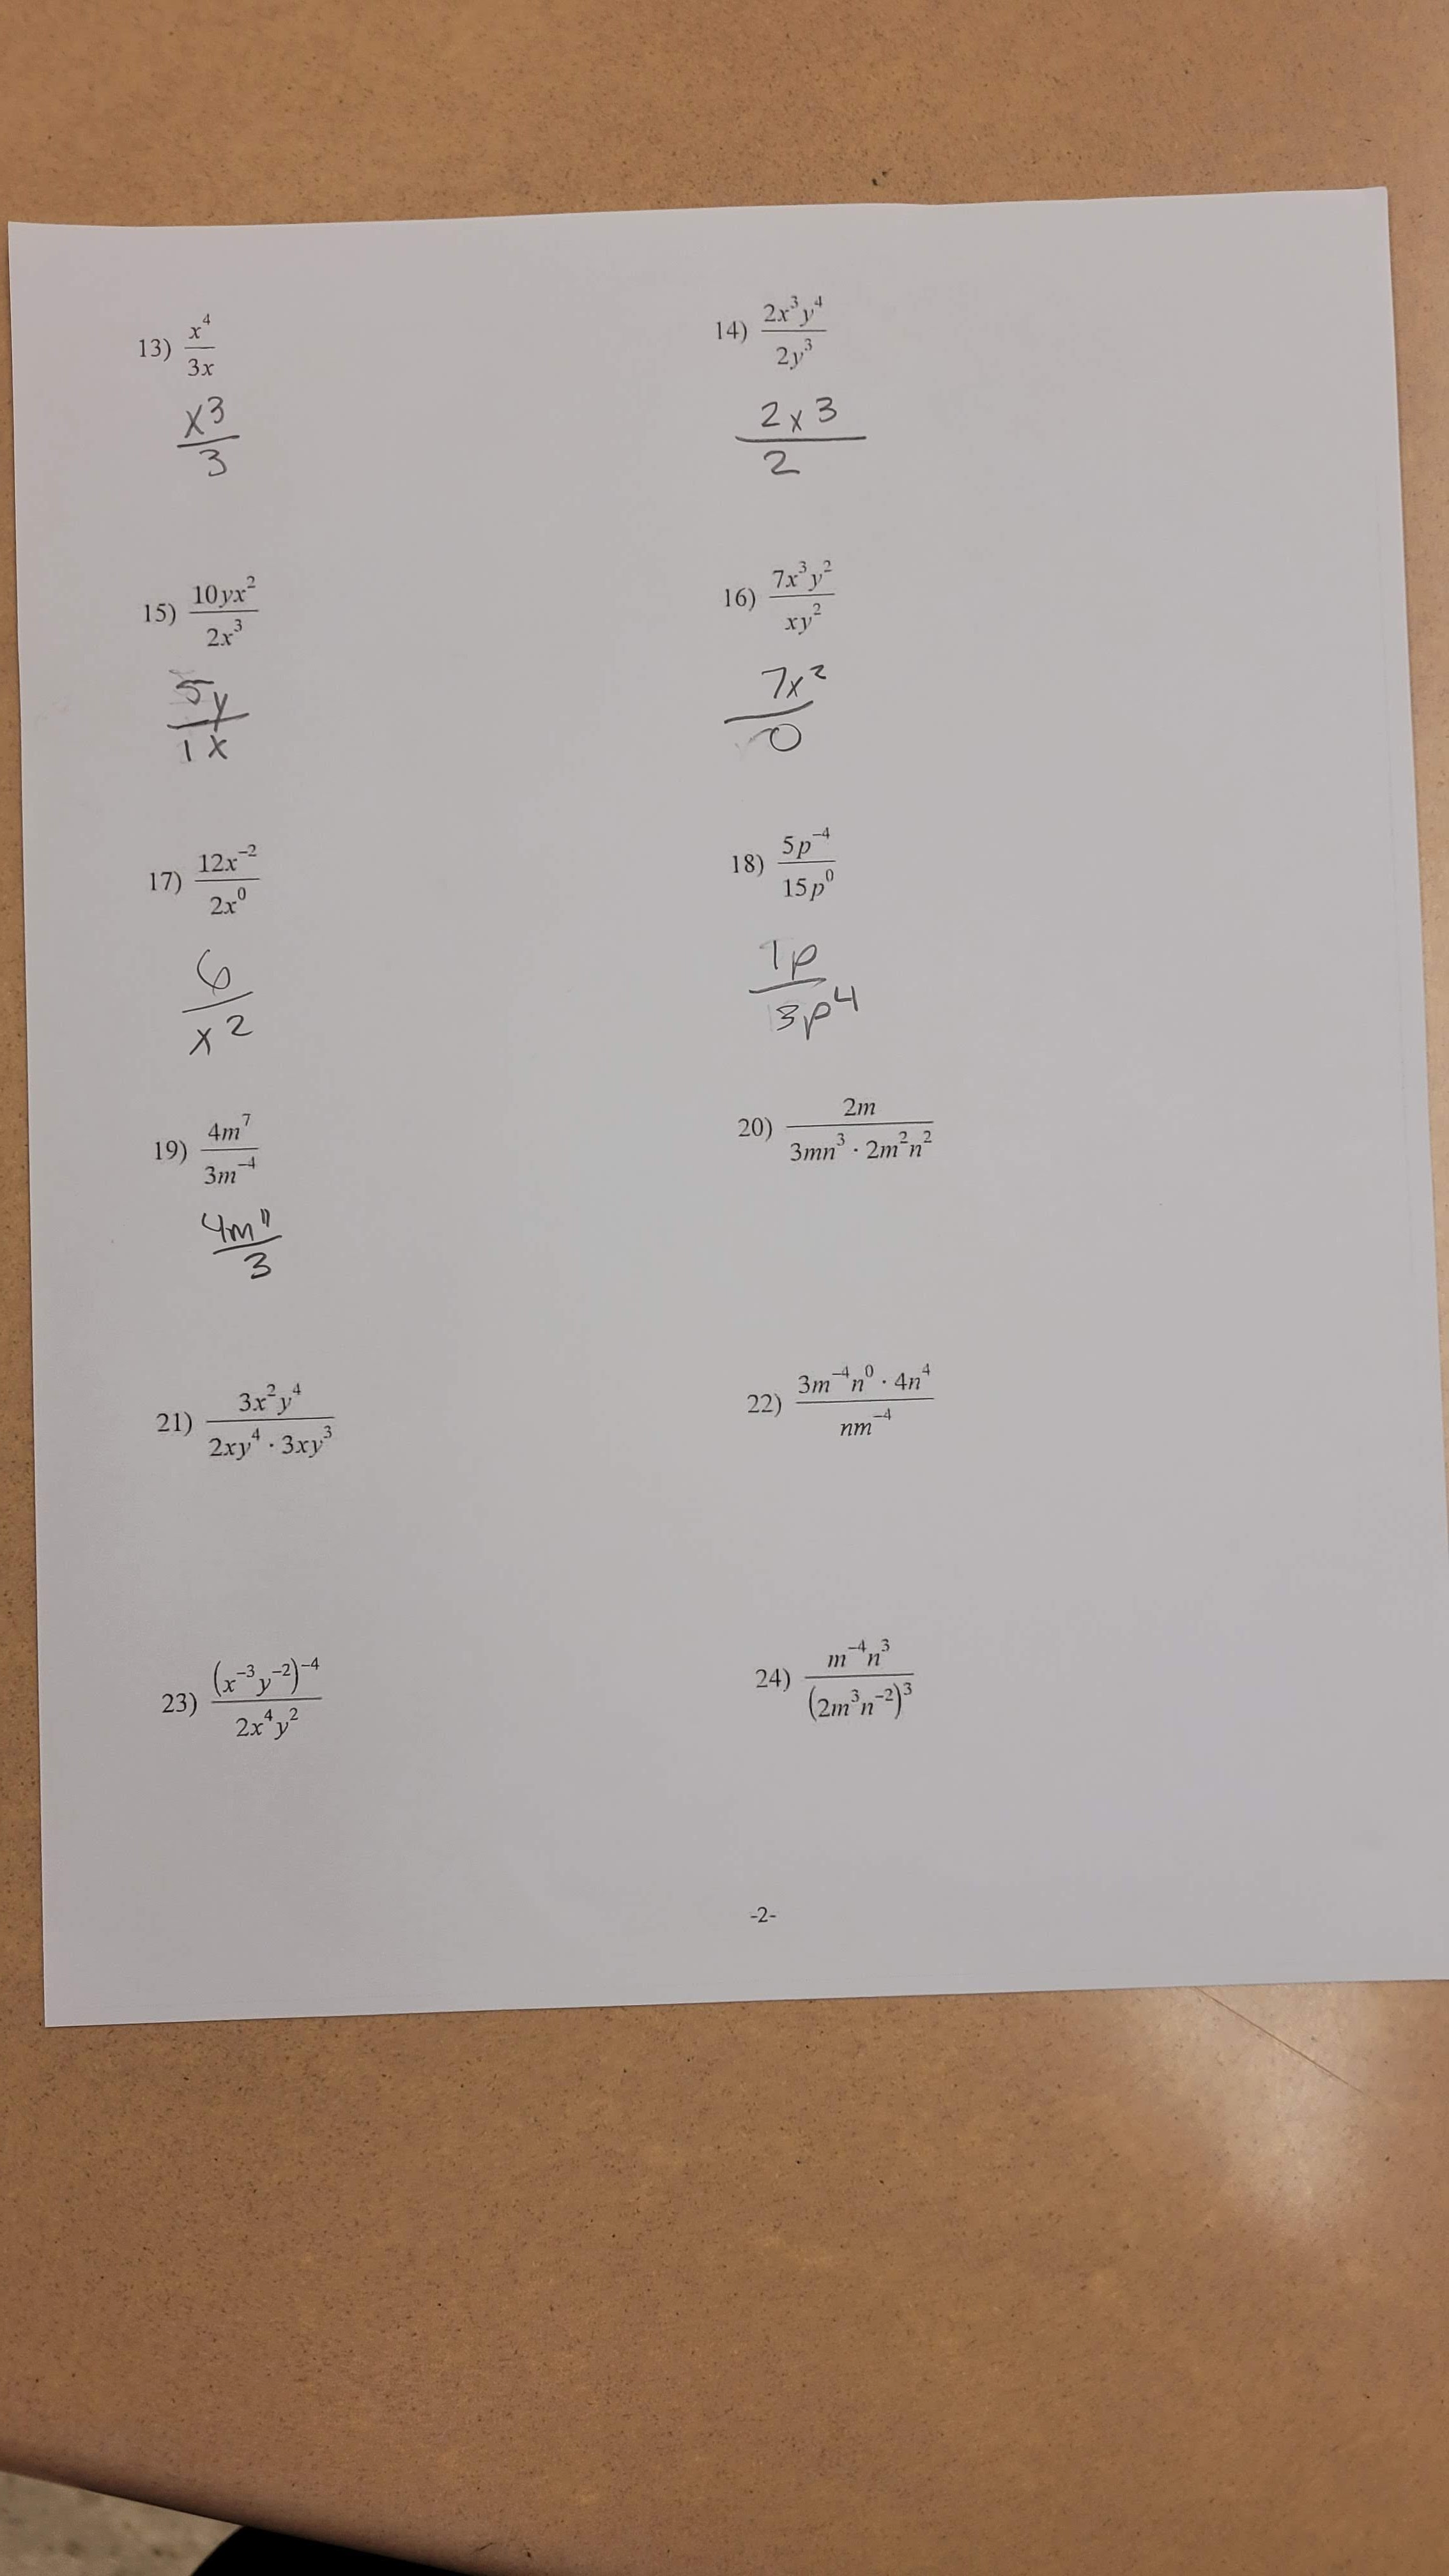 13) x⁴/3x
x3/3
14) 2x³y⁴/2y³
2x3/2
15) 10yx²/2x³
5y/1x
16) 7x³y²/xy²
7x²/0
17) 12x⁻²/2x⁰
6/x2
18) 5p⁻⁴/15p⁰
1p/3p4
19) 4m⁷/3m⁻⁴
4m¹¹/3
20) 2m/3mn³ · 2m²n²
21) 3x²y⁴/2xy⁴ · 3xy³
22) 3m⁻⁴n⁰ · 4n⁴/nm⁻⁴
23) (x⁻³y⁻²)⁻⁴/2x⁴y²
24) m⁻⁴n³/(2m³n⁻²)³
-2-